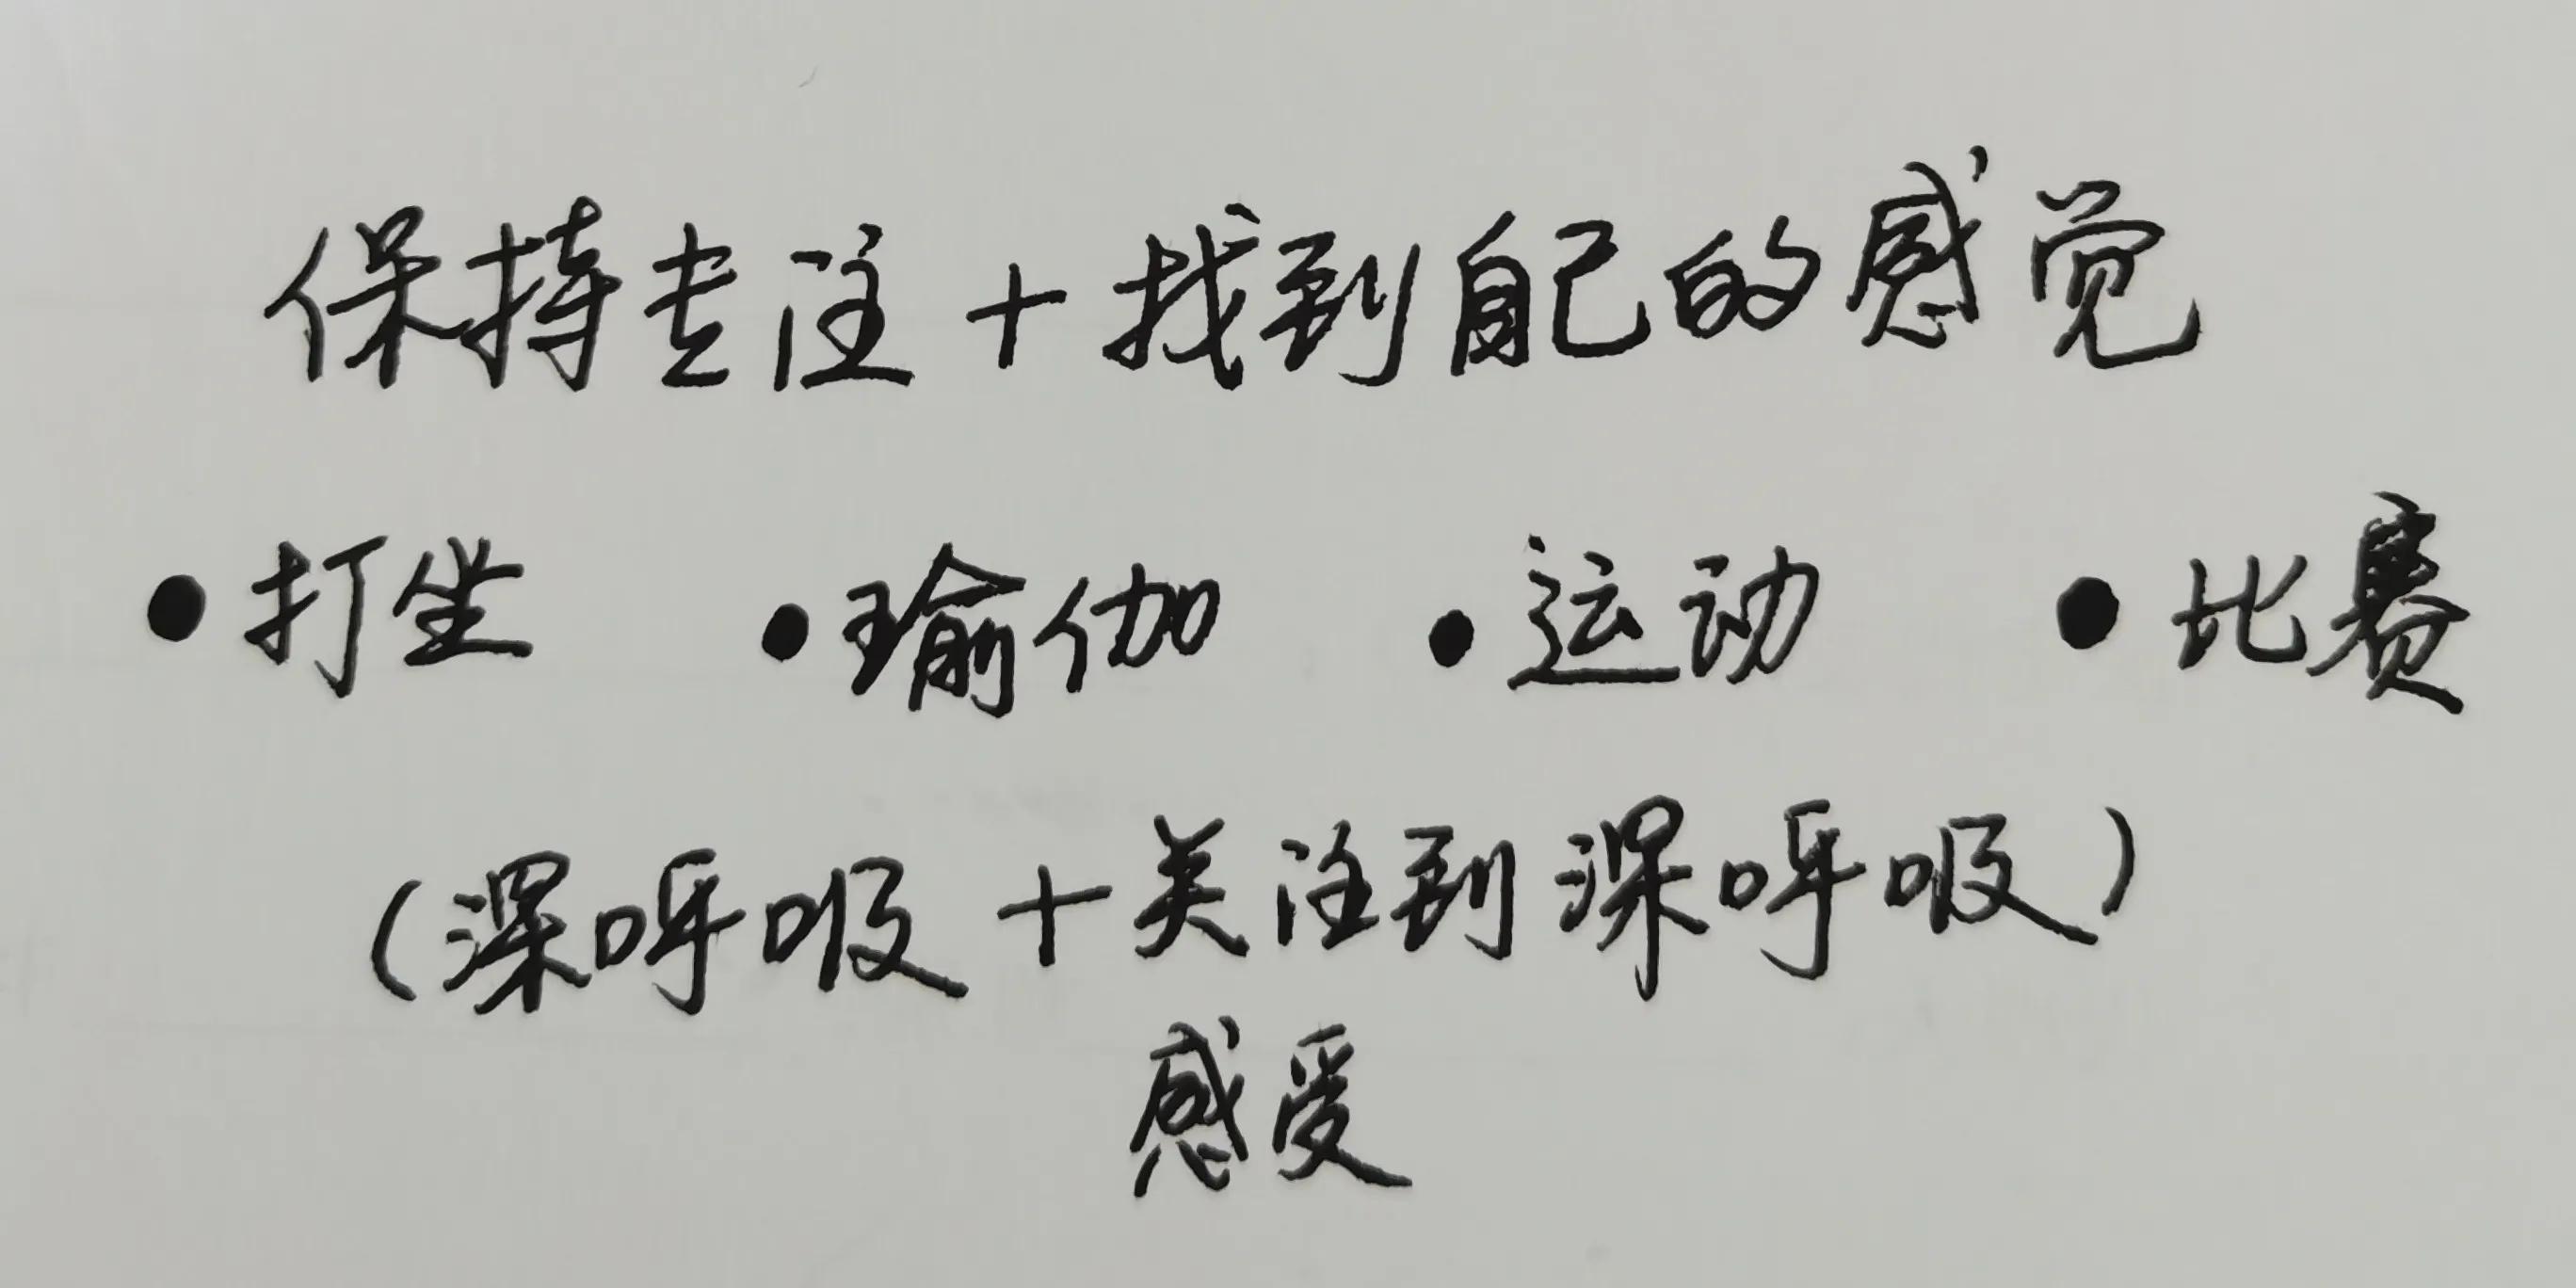 保持专注+找到自己的感觉
•打坐 •瑜伽 •运动 •比赛
(深呼吸+关注到深呼吸)
感受